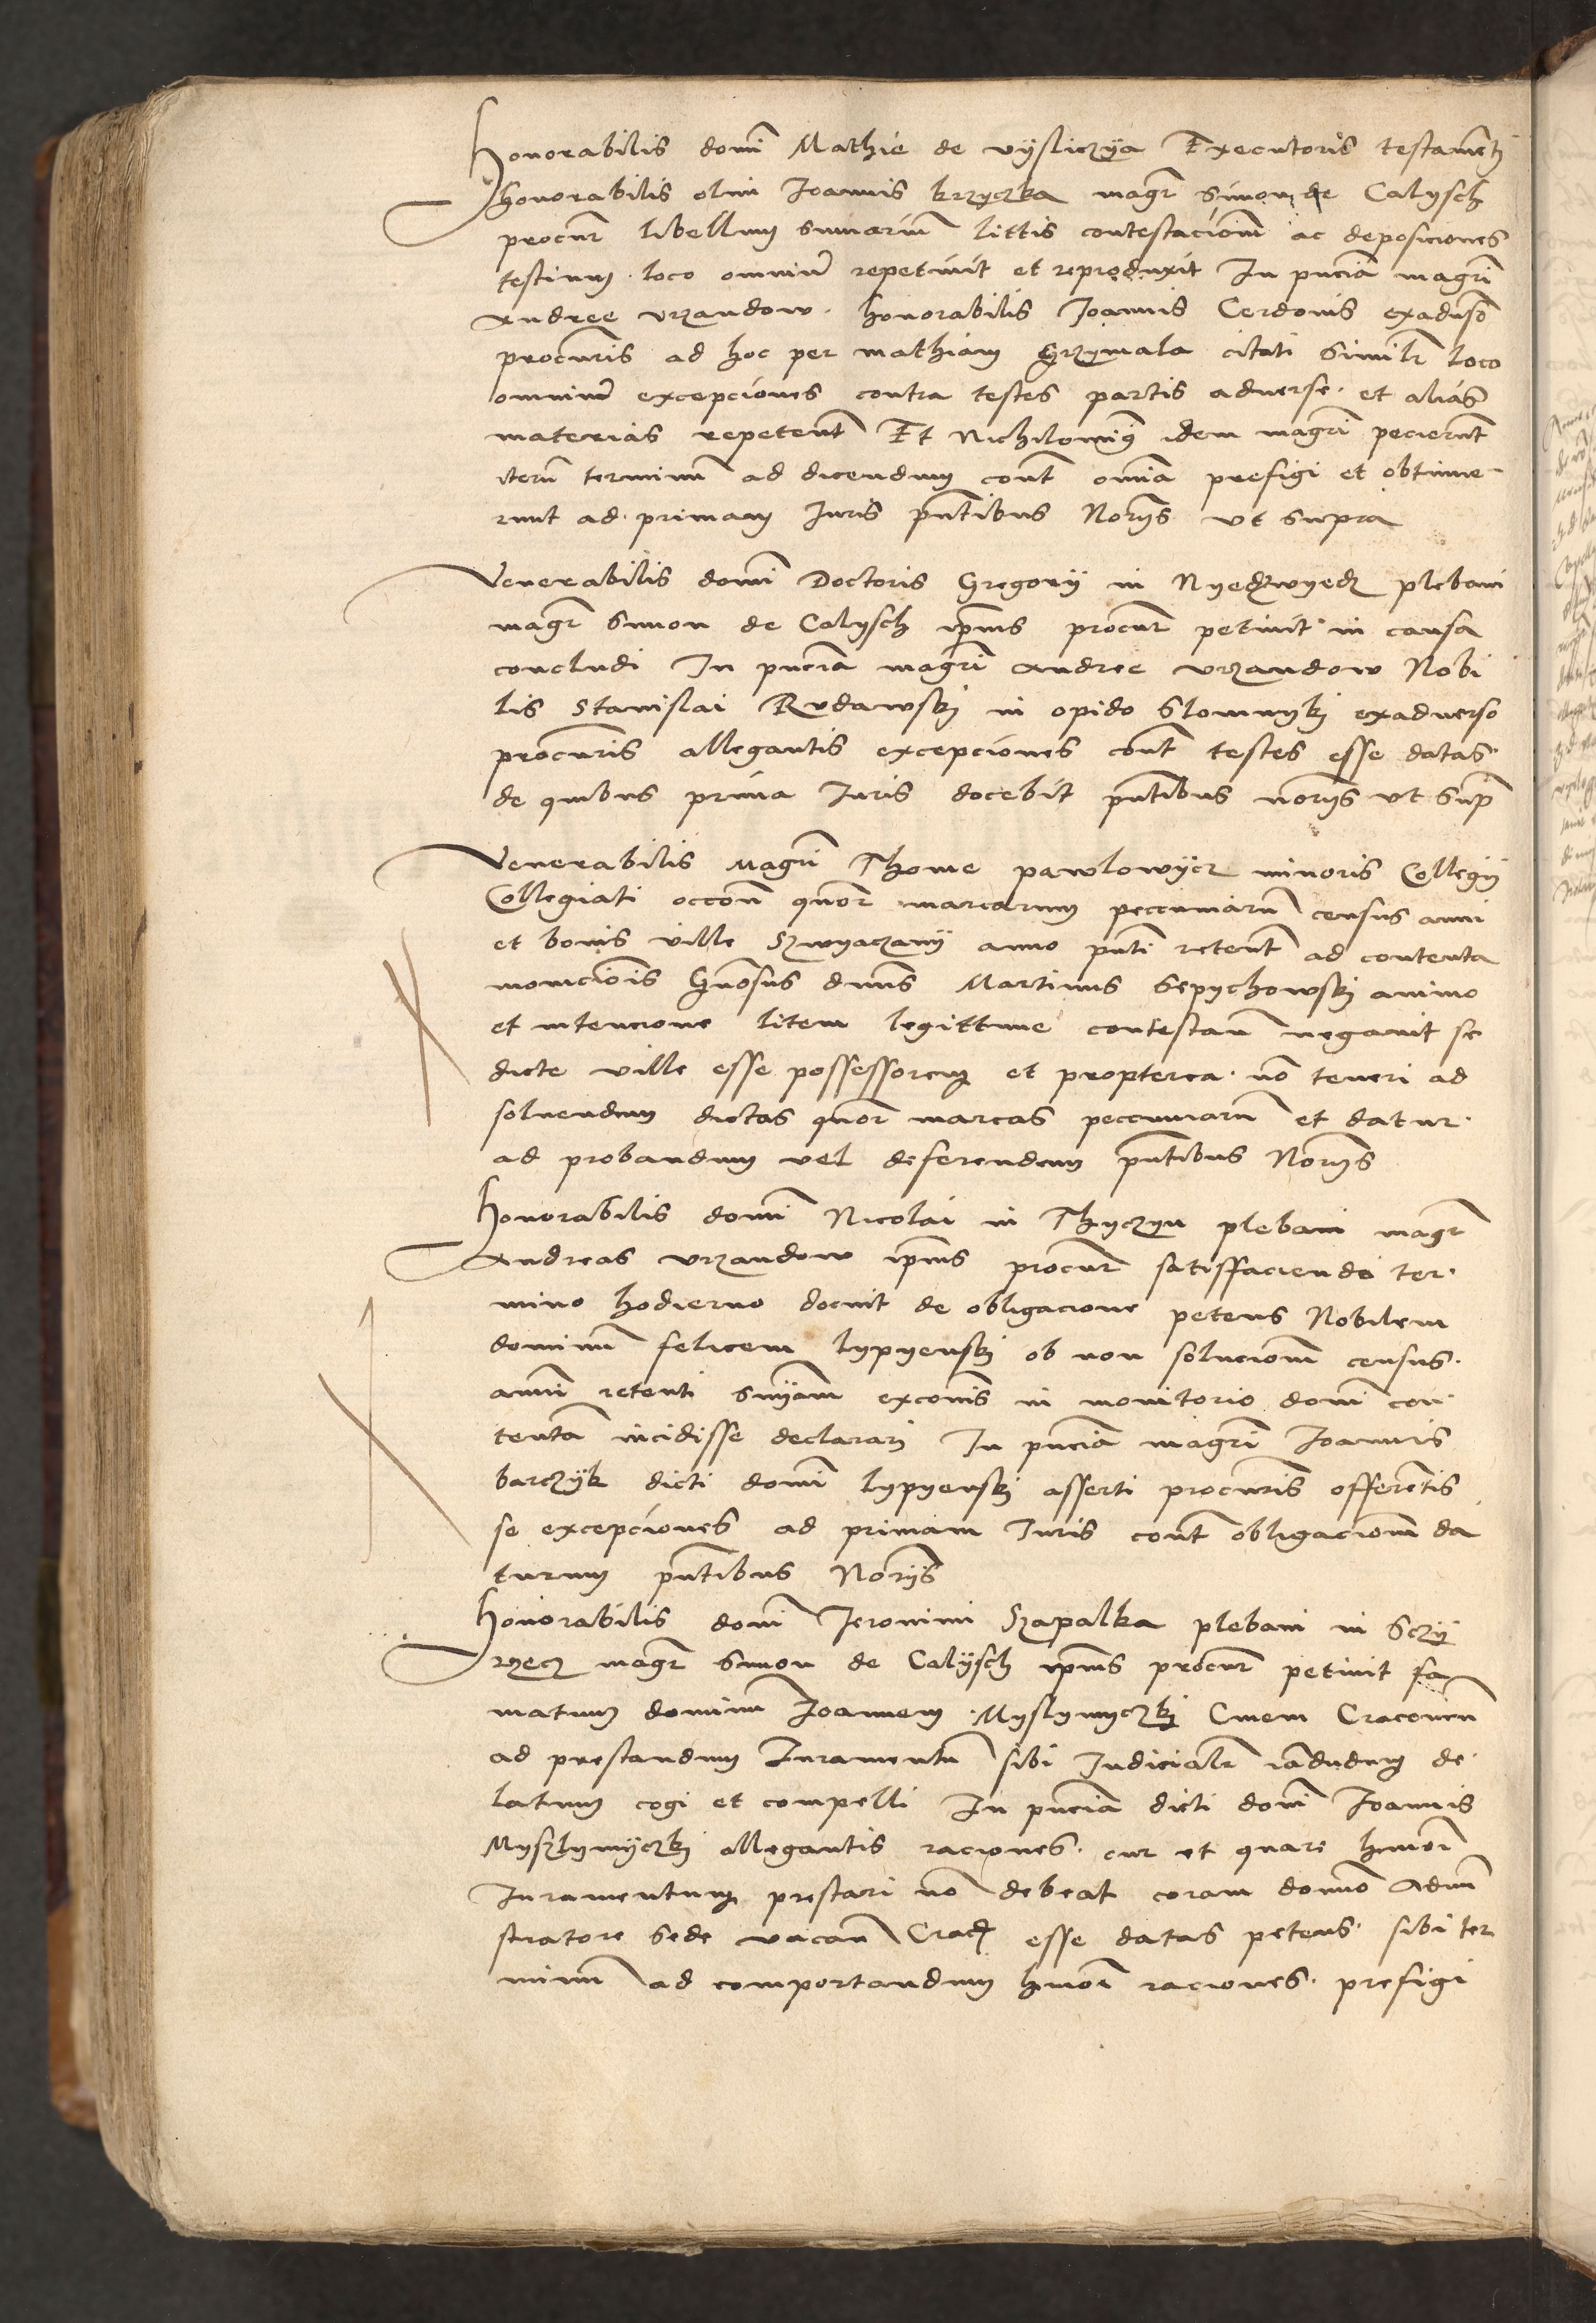 Honorabilis domī Mathie de vyslicżya Executoris testamētj
honorabilis olim Joannis krzyczka magr Simon de Calysch
procur libellum sumariū littis contestacionem ac deposiciones
testium loco omniū repetiuit et reproduxit In pnciā magrī
Andree vrzandow honorabilis Joannis Cerdonis exaduso
procuris ad hoc per mathiam Grzymala citati similr loco
omniū excepciones contra testes partis aduerse et alias
materias repetent Et Nichilominus idem magrī pecierunt
iterū terminū ad dicendum cont omīa prefigi et obtinue
runt ad primam Juris pntibus Norys vt supra
Venerabilis domī Doctoris Gregorij in Nyedzwyedz plebani
magr Simon de Calysch ipīus procur petiuit in causa
concludi In pnciā magrī Andree vrzandow Nobi
lis Stanislai Rudawskj in opido Slomnykj exaduerso
procuris allegantis excepciones cont testes esse datas
de quibus prima Juris docebit pntibus norys vt sup
Venerabilis Magrī Thome pawlowycz minoris Collegij
Collegiati occōn quor marcarum peccuniarū census anni
et bonis ville Szwyączany anno pnti retent ad contenta
monicionis Gnosus dnus Martinus Sepychowskj animo
et intencione litem legittime contestan negauit se
dicte ville esse possessorem et propterea nō teneri ad
soluendum dictas quor marcas peccuniarū et datur
ad probandum vel deferendum pntibus Norys
Honorabilis domī Nicolai in Thyczyn plebani magr
Andreas vrzandow ipīus procur satisffaciendo ter
mino hodierno docuit de obligacione petens Nobilem
dominū felicem lypyenskj ob non solucionem census
anni retenti snīam exconis in monitorio domī con
tentā incidisse declarari In pnciā magrī Joannis
barczyk dicti domī lypyenskj asserti procuris offerētis
se excepciones ad primam Juris cont obligacionem da
turum pntibus Norys
Honorabilis domī Jeronimi Szapalka plebani in Sczy
rzecz magr Simon de Calysch ipīus procur petiuit fa
matum dominū Joannem Myslymyczkj Ciuem Cracouien
ad prestandum Juramentū sibi Judicialr iādudum de
latum cogi et compelli In pnciā dicti domī Joannis
Myszlymyczkj allegantis raciones cur et quare hmoi
Juramentum prestari nō debeat coram domno Admi
stratore Sede vacan Crac esse datas petens sibi ter
minū ad comportandum hmoi raciones prefigi